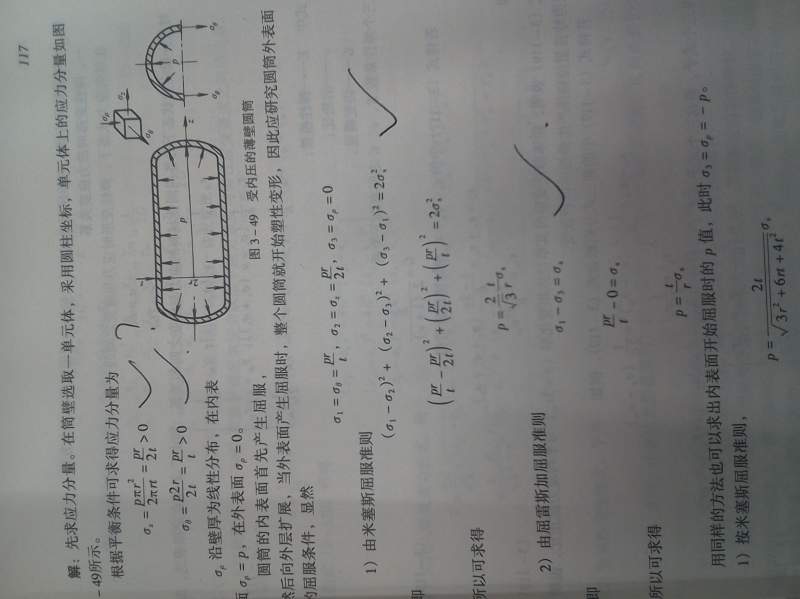 117
解：先求应力分量。在筒壁选取一单元体，采用圆柱坐标，单元体上的应力分量如图
-49所示。
根据平衡条件可求得应力分量为
σz = pπr²/2πrt = pr/2t > 0
σθ = p2r/2t = pr/t > 0
σρ 沿壁厚为线性分布，在内表
面 σρ = p，在外表面 σρ = 0。
图 3-49 受内压的薄壁圆筒
圆筒的内表面首先产生屈服，
然后向外层扩展，当外表面产生屈服时，整个圆筒就开始塑性变形，因此应研究圆筒外表面
的屈服条件，显然
σ₁ = σθ = pr/t，σ₂ = σz = pr/2t，σ₃ = σρ = 0
1）由米塞斯屈服准则
(σ₁ - σ₂)² + (σ₂ - σ₃)² + (σ₃ - σ₁)² = 2σs²
即
(pr/t - pr/2t)² + (pr/2t)² + (pr/t)² = 2σs²
所以可求得
p = 2/√3 t/r σs
2）由屈雷斯加屈服准则
σ₁ - σ₃ = σs
即
pr/t - 0 = σs
所以可求得
p = t/r σs
用同样的方法也可以求出内表面开始屈服时的 p 值，此时 σ₃ = σρ = -p。
1）按米塞斯屈服准则，
p = 2t/√(3r² + 6rt + 4t²) σs